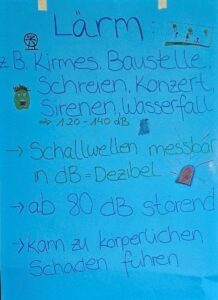 Lärm:
z.B. Kirmes, Baustelle,
Schreien, Konzert,
Sirenen, Wasserfall
→ 120-140 dB
→ Schallwellen messbar
in dB = Dezibel
→ ab 80 dB störend
→ kann zu körperlichen
Schäden führen